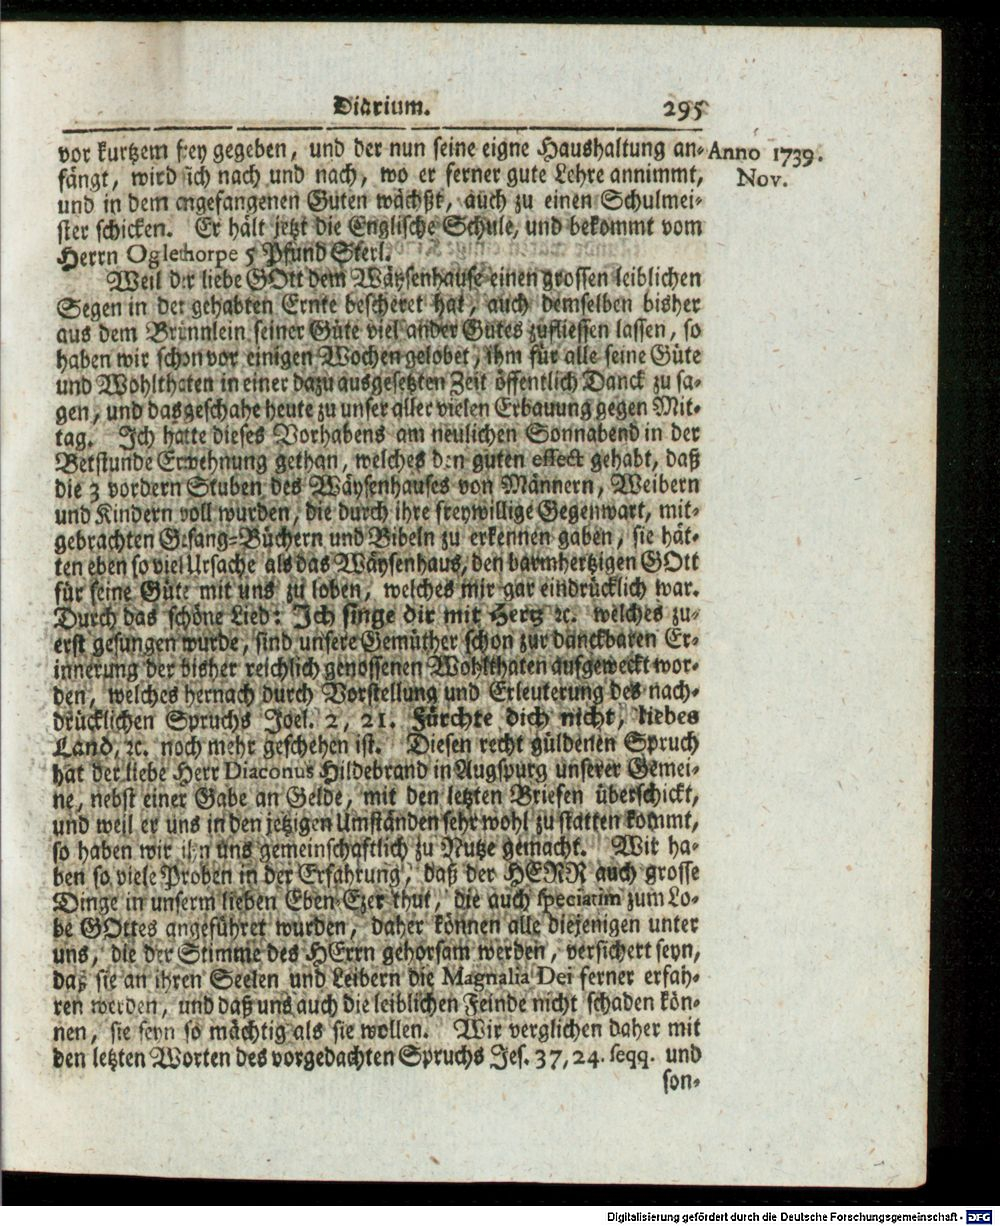 Diarium. 295
vor kurtzem frey gegeben, und der nun seine eigne Haushaltung an- Anno 1739.
fängt, wird sich nach und nach, wo er ferner gute Lehre annimmt, Nov.
und in dem angefangenen Guten wächßt, auch zu einen Schulmei-
ster schicken. Er hält jetzt die Englische Schule, und bekommt vom
Herrn Oglethorpe 5 Pfund Sterl.
Weil der liebe GOtt dem Wäysenhause einen grossen leiblichen
Segen in der gehabten Ernte bescheret hat, auch demselben bisher
aus dem Brünnlein seiner Güte viel ander Gutes zufliessen lassen, so
haben wir schon vor einigen Wochen gelobet, ihm für alle seine Güte
und Wohlthaten in einer dazu ausgesetzten Zeit öffentlich Danck zu sa-
gen, und das geschahe heute zu unser aller vielen Erbauung gegen Mit-
tag. Ich hatte dieses Vorhabens am neulichen Sonnabend in der
Betstunde Erwehnung gethan, welches den guten effect gehabt, daß
die 3 vordern Stuben des Wäysenhauses von Männern, Weibern
und Kindern voll wurden, die durch ihre freywillige Gegenwart, mit-
gebrachten Gesang-Büchern und Bibeln zu erkennen gaben, sie hät-
ten eben so viel Ursache als das Wäysenhaus, den barmhertzigen GOtt
für seine Güte mit uns zu loben, welches mir gar eindrücklich war.
Durch das schöne Lied: Ich singe dir mit Hertz ꝛc. welches zu-
erst gesungen wurde, sind unsere Gemüther schon zur danckbaren Er-
innerung der bisher reichlich genossenen Wohlthaten aufgeweckt wor-
den, welches hernach durch Vorstellung und Erleuterung des nach-
drücklichen Spruchs Joel. 2, 21. Fürchte dich nicht, liebes
Land, ꝛc. noch mehr geschehen ist. Diesen recht güldenen Spruch
hat der liebe Herr Diaconus Hildebrand in Augspurg unserer Gemei-
ne, nebst einer Gabe an Gelde, mit den letzten Briefen überschickt,
und weil er uns in den jetzigen Umständen sehr wohl zu statten kommt,
so haben wir ihn uns gemeinschaftlich zu Nutze gemacht. Wir ha-
ben so viele Proben in der Erfahrung, daß der HERR auch grosse
Dinge in unserm lieben Eben-Ezer thut, die auch speciatim zum Lo-
be GOttes angeführet wurden, daher können alle diejenigen unter
uns, die der Stimme des HErrn gehorsam werden, versichert seyn,
daß sie an ihren Seelen und Leibern die Magnalia Dei ferner erfah-
ren werden, und daß uns auch die leiblichen Feinde nicht schaden kön-
nen, sie seyn so mächtig als sie wollen. Wir verglichen daher mit
den letzten Worten des vorgedachten Spruchs Jes. 37, 24. seqq. und
son-
Digitalisierung gefördert durch die Deutsche Forschungsgemeinschaft - DFG